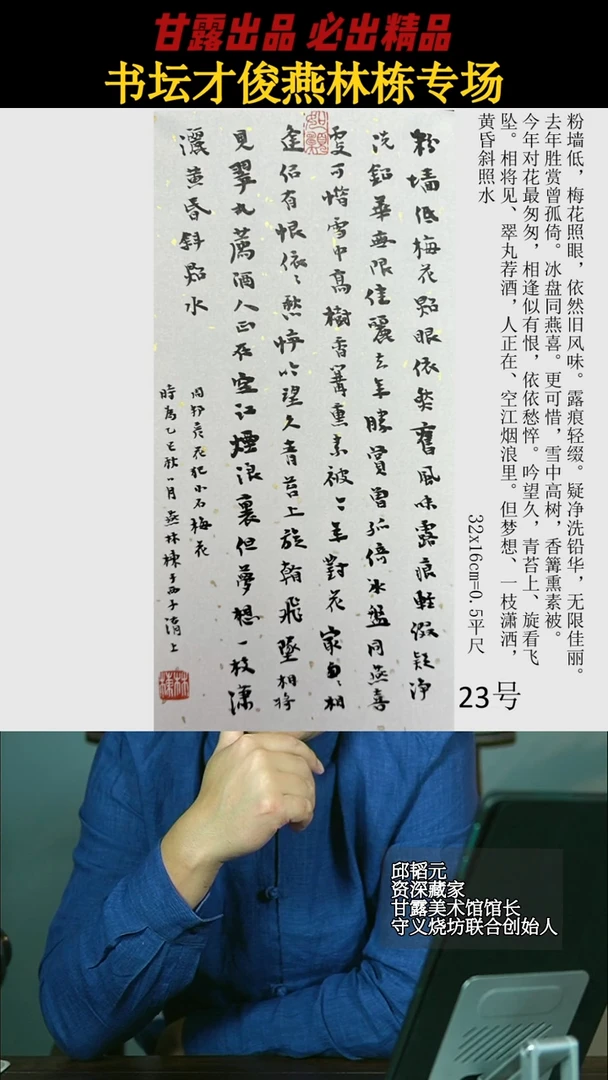 甘露出品 必出精品
书坛才俊燕林栋专场
粉墙低，梅花照眼，依然旧风味。露痕轻缀。疑净洗铅华，无限佳丽。
去年胜赏曾孤倚。冰盘同燕喜。更可惜，雪中高树，香篝熏素被。
今年对花最匆匆，相逢似有恨，依依愁悴。吟望久，青苔上、旋看飞
坠。相将见、翠丸荐酒，人正在、空江烟浪里。但梦想、一枝潇洒，
黄昏斜照水
32x16cm=0.5平尺
23号
粉墙低梅花照眼依然舊風味露痕輕綴疑净
洗鉛華無限佳麗去年勝賞曾孤倚冰盤同燕喜
更可惜雪中高樹香篝熏素被今年對花最匆匆相
逢似有恨依依愁悴吟望久青苔上旋看飛墜相將
見翠丸薦酒人正在空江煙浪裏但夢想一枝瀟
灑黄昏斜照水
周邦彦花犯小石梅花
時爲乙巳秋八月燕林棟于西子湖上
邱韬元
资深藏家
甘露美术馆馆长
守义烧坊联合创始人